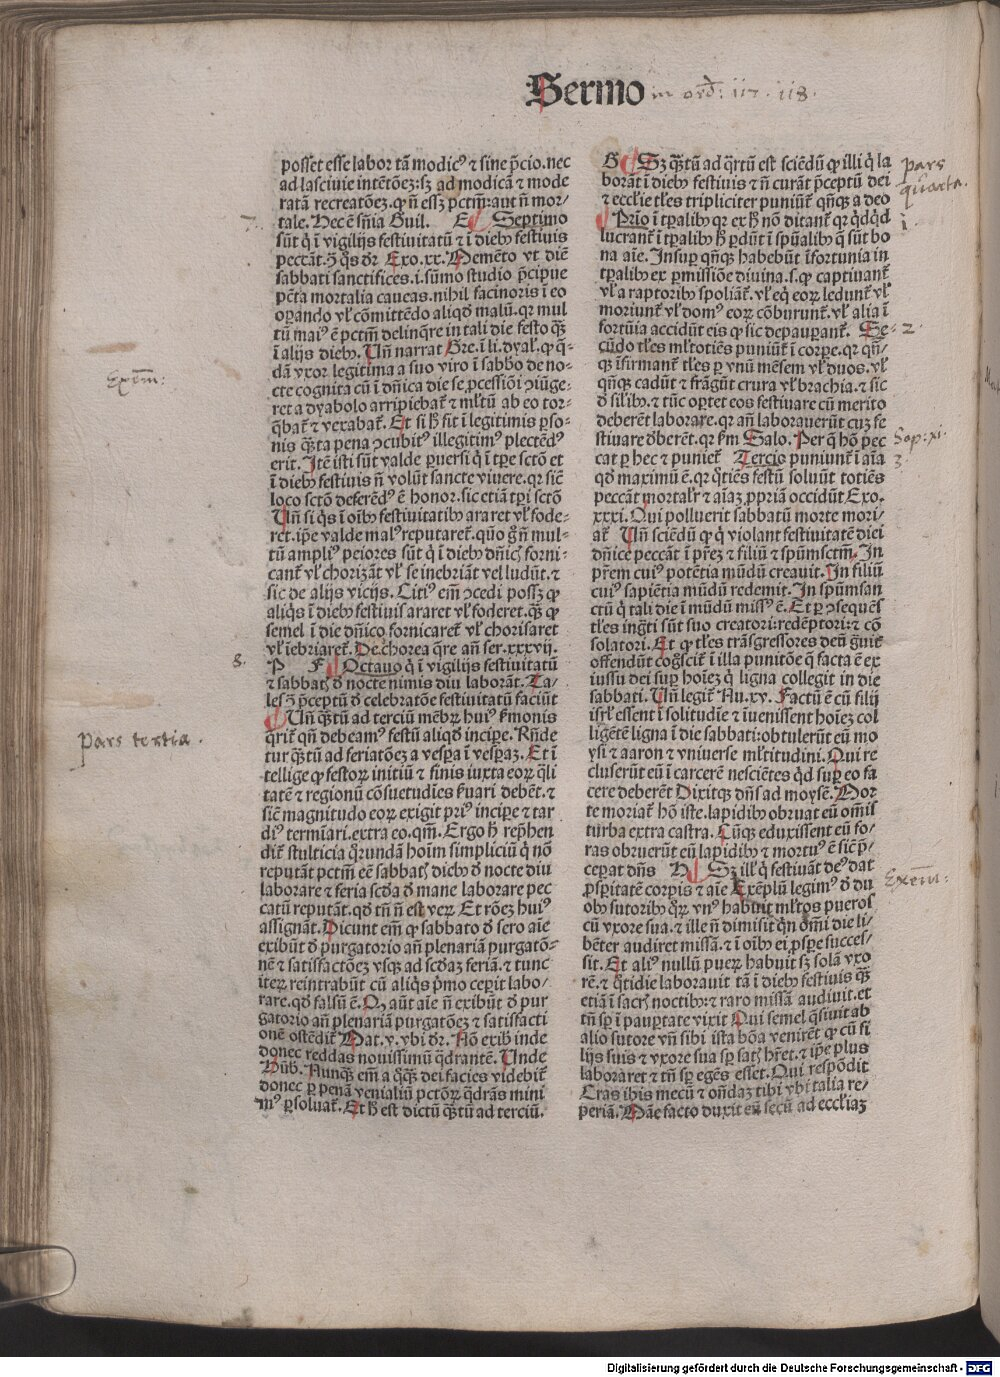 Sermo in ord: 117. 118.
posset esse labor tā modicꝰ ⁊ sine p̄cio. nec
ad lasciuie intētōeꝫ: sꝫ ad modicā ⁊ mode
ratā recreatōeꝫ. ꝙ n̄ essꝫ pctm̄: aut n̄ mor/
tale. Hec ē sn̄ia Guil. E Septimo
7.
sūt q̇ ī vigilijs festiuitatū ⁊ ī diebꝰ festiuis
peccāt. ꝯ̄ q̄s dr̄ Exo. xx. Memēto vt diē
sabbati sanctifices. i. sūmo studio p̄cipue
pc̄ta mortalia caueas. nihil facinoris ī eo
oꝑando vl̓ cōmittēdo aliqd̓ malū. qꝛ mul
tū maiꝰ ē pctm̄ delinq̄re in tali die festo q̄ꝫ
ī alijs diebꝰ. Un̄ narrat Gre. ī li. dyal̓. ꝙ q̄-
dā vxor legitima a suo viro ī sabb̓o de no-
Exem̄:
cte cognita cū ī dn̄ica die se ꝓcessiōi ꝯiūge-
ret a dyabolo arripiebat̄ ⁊ ml̓tū ab eo tor-
q̄bat̄ ⁊ vexabat̄. Et si h̓ fit ī legitimis ꝑso-
nis q̄ꝫta pena ꝯcubitꝰ illegitimꝰ plectēdꝰ
erit. Itē isti sūt valde ꝑuersi q̇ ī tꝑe sctō et
ī diebꝰ festiuis n̄ volūt sancte viuere. qꝛ sic̄
loco sctō deferēdꝰ ē honor. sic etiā tꝑi sctō
Un̄ si q̇s ī oībꝰ festiuitatibꝰ araret vl̓ fode-
ret. ip̄e valde malꝰ reputaret̄. quō g̊ n̄ mul-
tū ampliꝰ peiores sūt q̇ ī diebꝰ dn̄ic̄ forni-
cant̄ vl̓ chorizāt vl̓ se inebriāt vel ludūt. ⁊
sic de alijs vicijs. Citiꝰ em̄ ꝯcedi possꝫ ꝙ
aliq̇s ī diebꝰ festiuis araret vl̓ foderet. q̄ꝫ ꝙ
semel ī die dn̄ico fornicaret̄ vl̓ chorisaret
vl̓ īebriaret̄. De chorea q̄re an̄ ser. xxxvij.
P F Octauo q̇ ī vigilijs festiuitatū
8.
⁊ sabbat̄ d̓ nocte nimis diu laborāt. Ta/
les ꝯ̄ p̄ceptū d̓ celebratōe festiuitatū faciūt
Un̄ q̄ꝫtū ad terciū mēbꝝ huiꝰ s̓monis
pars tertia.
q̄rit̄ qn̄ debeamꝰ festū aliqd̓ incipe. Rn̄de
tur q̄ꝫtū ad feriatōeꝫ a vespa ī vespaꝫ. Et ī
tellige ꝙ festoꝝ initiū ⁊ finis iuxta eoꝝ q̄li
tatē ⁊ regionū cōsuetudies s̓uari debēt. ⁊
sic̄ magnitudo eoꝝ exigit priꝰ incipe ⁊ tar
diꝰ termīari. extra eo. qm̄. Ergo h̓ rep̄hen
dit̄ stulticia q̄rundā hoīm simpliciū q̇ nō
reputāt pctm̄ eē sabbat̄ diebꝰ d̓ nocte diu
laborare ⁊ feria scd̓a d̓ mane laborare pec
catū reputāt. qd̓ tn̄ n̄ est veꝝ Et rōeꝫ huiꝰ
assignāt. Dicunt em̄ ꝙ sabbato d̓ sero aīe
exibūt d̓ purgatorio an̄ plenariā purgatō-
nē ⁊ satisfactōeꝫ vsqꝫ ad scd̓aꝫ feriā. ⁊ tunc
iteꝝ reintrabūt cū aliq̇s p̄mo ceperit labo/
rare. qd̓ falsū ē. Qꝫ aūt aīe n̄ exibūt d̓ pur
gatorio an̄ plenariā purgatōeꝫ ⁊ satisfacti
onē ostēdit̄ Mat. v. vbi dr̄. Nō exibꝭ inde
donec reddas nouissimū q̄drantē. Unde
Bub̓. Nunqꝫ em̄ a q̄qꝫ dei facies videbit̄
donec ꝑ penā venialiū pctōꝝ q̄drās mini
mꝰ ꝑsoluat̄. Et h̓ est dictū q̄ꝫtū ad terciū.
G Sꝫ q̄ꝫtū ad q̄rtū est sciēdū ꝙ illi q̇ la
pars quarta.
borāt ī diebꝰ festiuis ⁊ n̄ curāt p̄ceptū dei
⁊ eccl̓ie tl̓es tripliciter puniūt̄ qn̄qꝫ a deo
Prīo ī tꝑalibꝰ qꝛ ex h̓ nō ditant̄ qꝛ qd̓qd̓
i
lucrant̄ ī tꝑalibꝰ h̓ ꝑdūt ī spūalibꝰ q̄ sūt bo
na aīe. Insuꝑ qn̄qꝫ habebūt īfortunia in
tꝑalibꝰ ex ꝑmissiōe diuina. s. ꝙ captiuant̄
vl̓ a raptoribꝰ spoliāt̄. vl̓ eq̇ eoꝝ ledunt̄ vl̓
moriunt̄ vl̓ domꝰ eoꝝ cōburunt̄. vl̓ alia ī
fortūia accidūt eis ꝙ sic depauꝑant̄. Se-
2.
cūdo tl̓es ml̓totiēs puniūt̄ ī corꝑe. qꝛ qn̄/
qꝫ īfirmant̄ tl̓es ꝑ vnū mēsem vl̓ duos. vl̓
qn̄qꝫ cadūt ⁊ frāgūt crura vl̓ brachia. ⁊ sic
d̓ sil̓ibꝰ. ⁊ tūc oꝑtet eos festiuare cū merito
deberēt laborare. qꝛ an̄ laborauerūt cuꝫ fe
stiuare d̓berēt. qꝛ s̓m Salo. Per q̄ hō pec
Sap: xi.
cat ꝑ hec ⁊ puniet̄. Tercio puniunt̄ ī aīa
3.
qd̓ maximū ē. qꝛ q̄tiēs festū soluūt totiēs
peccāt mortalr̄ ⁊ aīaꝫ ꝓpriā occidūt Exo.
xxxi. Qui polluerit sabbatū morte mori/
at̄. Un̄ sciēdū ꝙ q̇ violant festiuitatē diei
dn̄ice peccāt ī pr̄eꝫ ⁊ filiū ⁊ spūmsctm̄. In
pr̄em cuiꝰ potētia mūdū creauit. In filiū
cuiꝰ sapiētia mūdū redemit. In spūmsan
ctū q̇ tali die ī mūdū missꝰ ē. Et ꝑ ꝯsequēs
tl̓es ingt̄i sūt suo creatori: redēptori: ⁊ cō
solatori. Et ꝙ tl̓es trāsgressores deū g̊uit̓
offendūt cog̊scit̄ ī illa punitōe q̄ facta ē ex
iussu dei suꝑ hoīeꝫ q̇ ligna collegit in die
sabbati. Un̄ legit̄ Nu. xv. Factū ē cū filij
isrl̓ essent ī solitudīe ⁊ īuenissent hoīeꝫ col
ligētē ligna ī die sabbati: obtulerūt eū mo
ysi ⁊ aaron ⁊ vniuerse ml̓titudini. Qui re
cluserūt eū ī carcerē nesciētes qd̓ suꝑ eo fa
cere deberēt Dixitqꝫ dn̄s ad moysē. Mor
te moriat̄ hō iste. lapidibꝰ obruat eū om̄is
turba extra castra. Cūqꝫ eduxissent eū fo/
ras obruerūt eū lapidibꝰ ⁊ mortuꝰ ē sic̄ p̄/
ceperat dn̄s H Sꝫ ill̓ q̇ festiuāt deꝰ dat
ꝓspitatē corpis ⁊ aīe Exēplū legimꝰ d̓ du
Exem̄:
obꝰ sutoribꝰ q̄ꝝ vnꝰ habuit ml̓tos pueros
cū vxore sua. ⁊ ille n̄ dimisit qn̄ om̄i die li/
bēter audiret missā. ⁊ ī oībꝰ ei ꝓspe succes/
sit. Et aliꝰ nullū pueꝝ habuit sꝫ solā vxo
rē. ⁊ q̄tidie laborauit tā ī diebꝰ festiuis q̄ꝫ
etiā ī sacr̄ noctibꝰ: ⁊ raro missā audiuit. et
tn̄ sp̄ ī pauꝑtate vixit Qui semel q̄siuit ab
alio sutore vn̄ sibi ista bōa venirēt ꝙ cū fi
lijs suis ⁊ vxore sua sp̄ sat̄ hr̄et. ⁊ ip̄e plus
laboraret ⁊ tn̄ sp̄ egēs esset. Qui respōdit
Cras ibis mecū ⁊ on̄daꝫ tibi vbi talia re/
periā. Māe facto duxit eū secū ad eccl̓iaꝫ
Digitalisierung gefördert durch die Deutsche Forschungsgemeinschaft - DFG